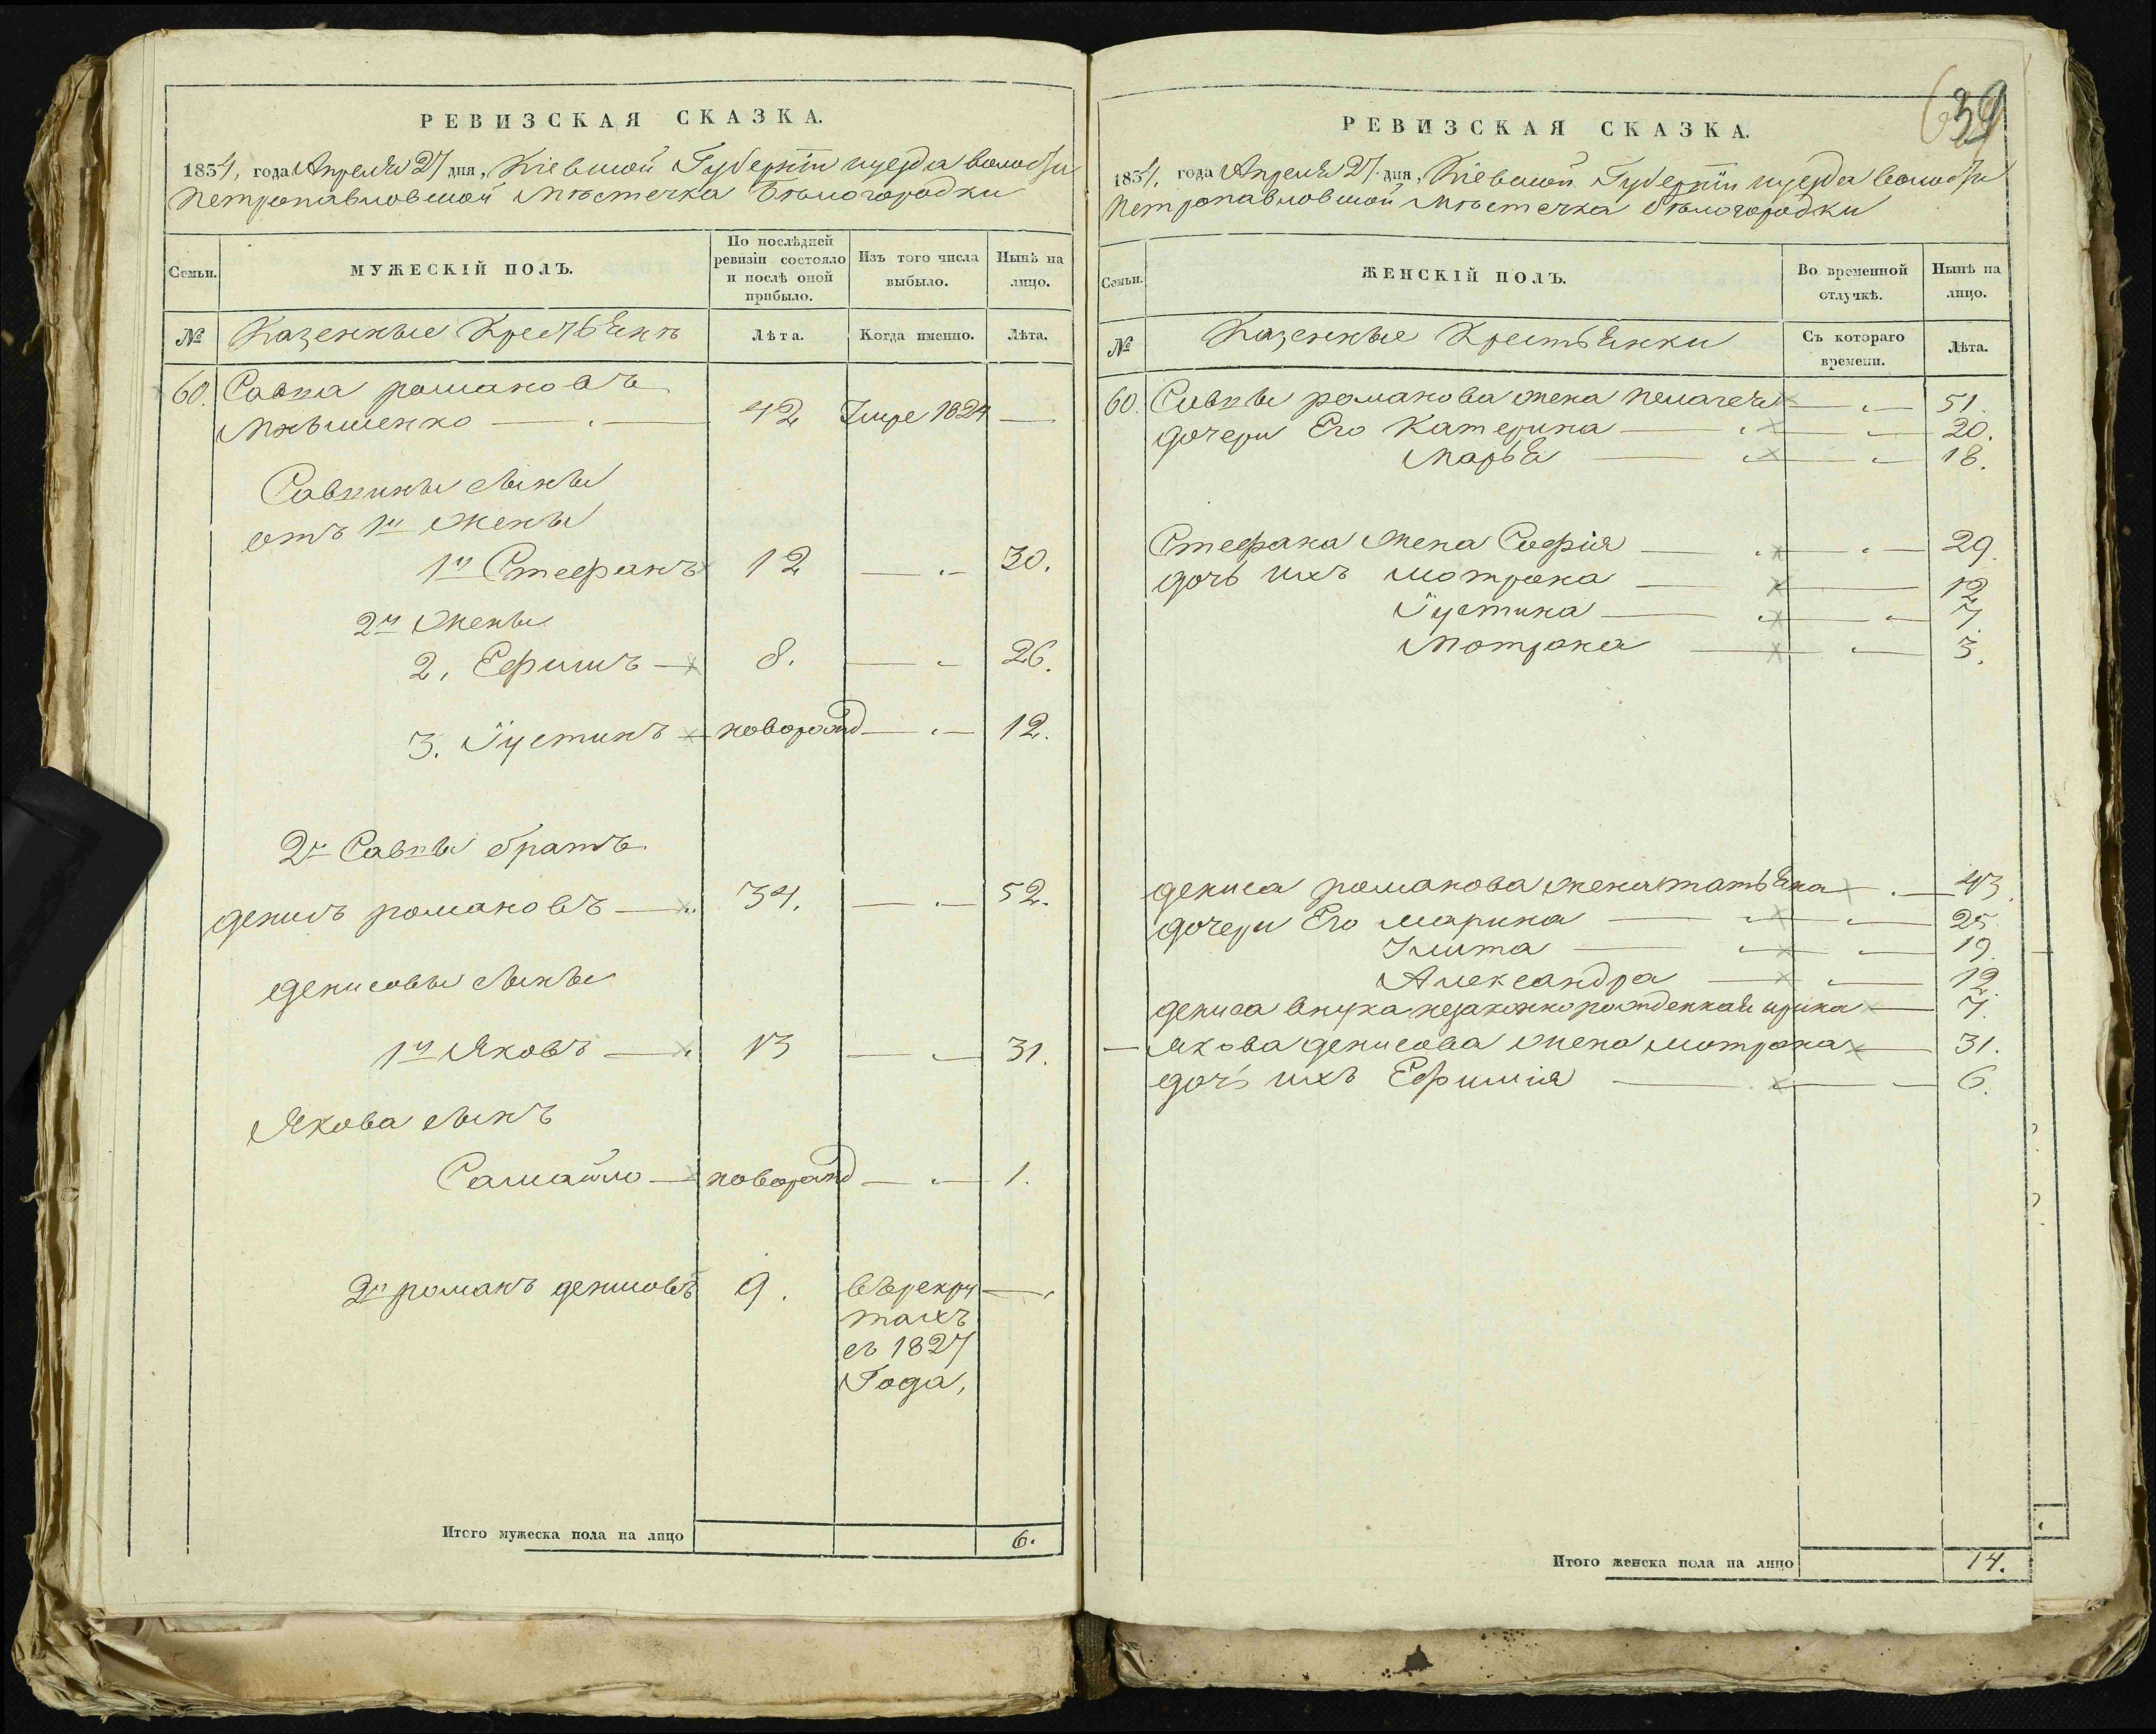 РЕВИЗСКАЯ СКАЗКА.
1834, года Апреля 27 дня, Кіевской Губерніи и уезда волости
Петропавловской Местечка Белогородки
Семьи.
МУЖЕСКІЙ ПОЛЪ.
По послѣдней ревизіи состояло и послѣ оной прибыло.
Изъ того числа выбыло.
Нынѣ на лицо.
№
Казенные Крестьяне
Лѣта.
Когда именно.
Лѣта.
60. Савка романовъ
42 Умре 1824 —
Савкины сыны
отъ 1й жены
1й Стефанъ 12 — 30.
2й жены
2. Ефимъ — 8. — 26.
3. Іустинъ — новорожд — 12.
2й Савки братъ
денисъ романовъ — 34. — 52.
денисовы сыны
1й Яковъ — 13 — 31.
Якова сынъ
Самайло — новорожд — 1.
2й романъ денисовъ 9. въ рекру —
тахъ
съ 1827
Года,
Итого мужеска пола на лицо 6.
39
РЕВИЗСКАЯ СКАЗКА.
1834, года Апреля 27 дня, Кіевской Губерніи и уезда волости
Петропавловской Местечка Белогородки
Семьи.
ЖЕНСКІЙ ПОЛЪ.
Во временной отлучкѣ.
Нынѣ на лицо.
№
Казенные Крестьянки
Съ котораго времени.
Лѣта.
60. Савки романова жена пелагея — 51.
дочери Его Катерина — 20.
Марья — 18.
Стефана жена Софія — 29.
дочь ихъ мотрона — 12
Іустина — 7.
Мотрона — 3.
дениса романова жена татьяна — 43.
дочери Его марина — 25
Улита — 19.
Александра — 12.
дениса внука незаконнорожденная ирина — 7.
— Якова денисова жена мотрона — 31.
дочь ихъ Ефимія — 6.
Итого женска пола на лицо 14.